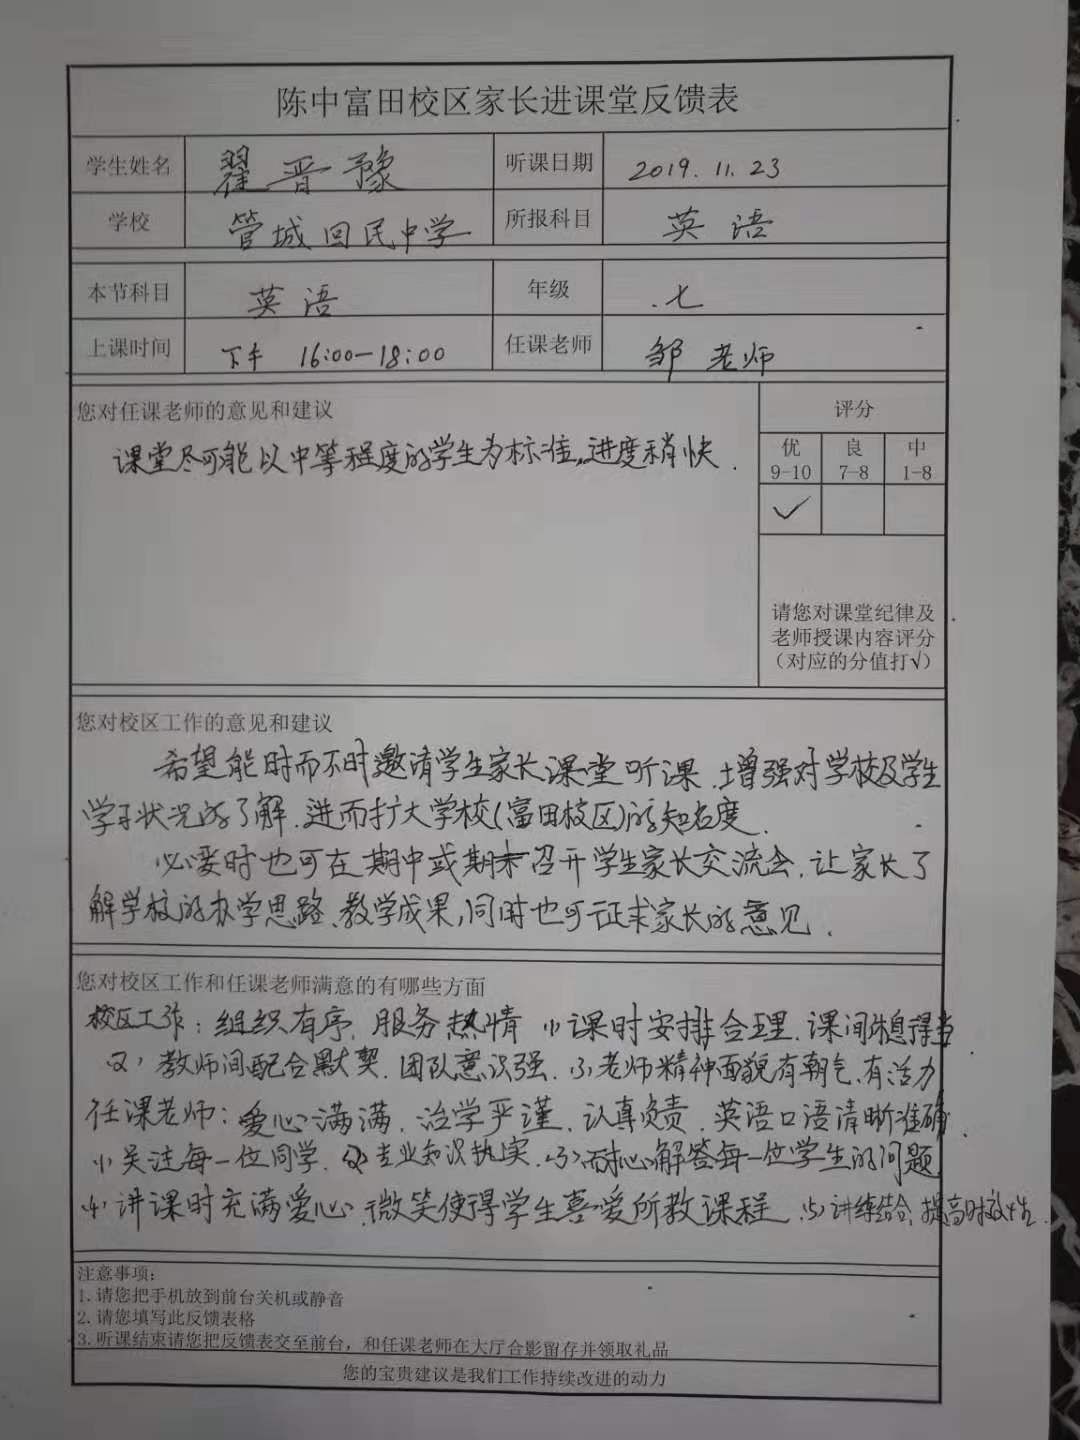 陈中富田校区家长进课堂反馈表
学生姓名 翟晋豫 听课日期 2019.11.23
学校 管城回民中学 所报科目 英语
本节科目 英语 年级 七
上课时间 下午 16:00-18:00 任课老师 邹老师
您对任课老师的意见和建议 评分
课堂尽可能以中等程度的学生为标准,进度稍快.
优 良 中
9-10 7-8 1-8
✓
请您对课堂纪律及
老师授课内容评分
(对应的分值打√)
您对校区工作的意见和建议
希望能时而不时邀请学生家长课堂听课.增强对学校及学生
学习状况的了解.进而扩大学校(富田校区)的知名度.
必要时也可在期中或期末召开学生家长交流会,让家长了
解学校的办学思路、教学成果,同时也可征求家长的意见.
您对校区工作和任课老师满意的有哪些方面
校区工作:组织有序,服务热情 (1)课时安排合理.课间休息得当
(2)教师间配合默契.团队意识强.(3)老师精神面貌有朝气、有活力
任课老师:爱心满满.治学严谨.认真负责.英语口语清晰准确.
(1)关注每一位同学.(2)专业知识执实.(3)耐心解答每一位学生的问题
(4)讲课时充满爱心.微笑使得学生喜爱所教课程.(5)讲练结合,提高时效性.
注意事项:
1.请您把手机放到前台关机或静音
2.请您填写此反馈表格
3.听课结束请您把反馈表交至前台,和任课老师在大厅合影留存并领取礼品
您的宝贵建议是我们工作持续改进的动力